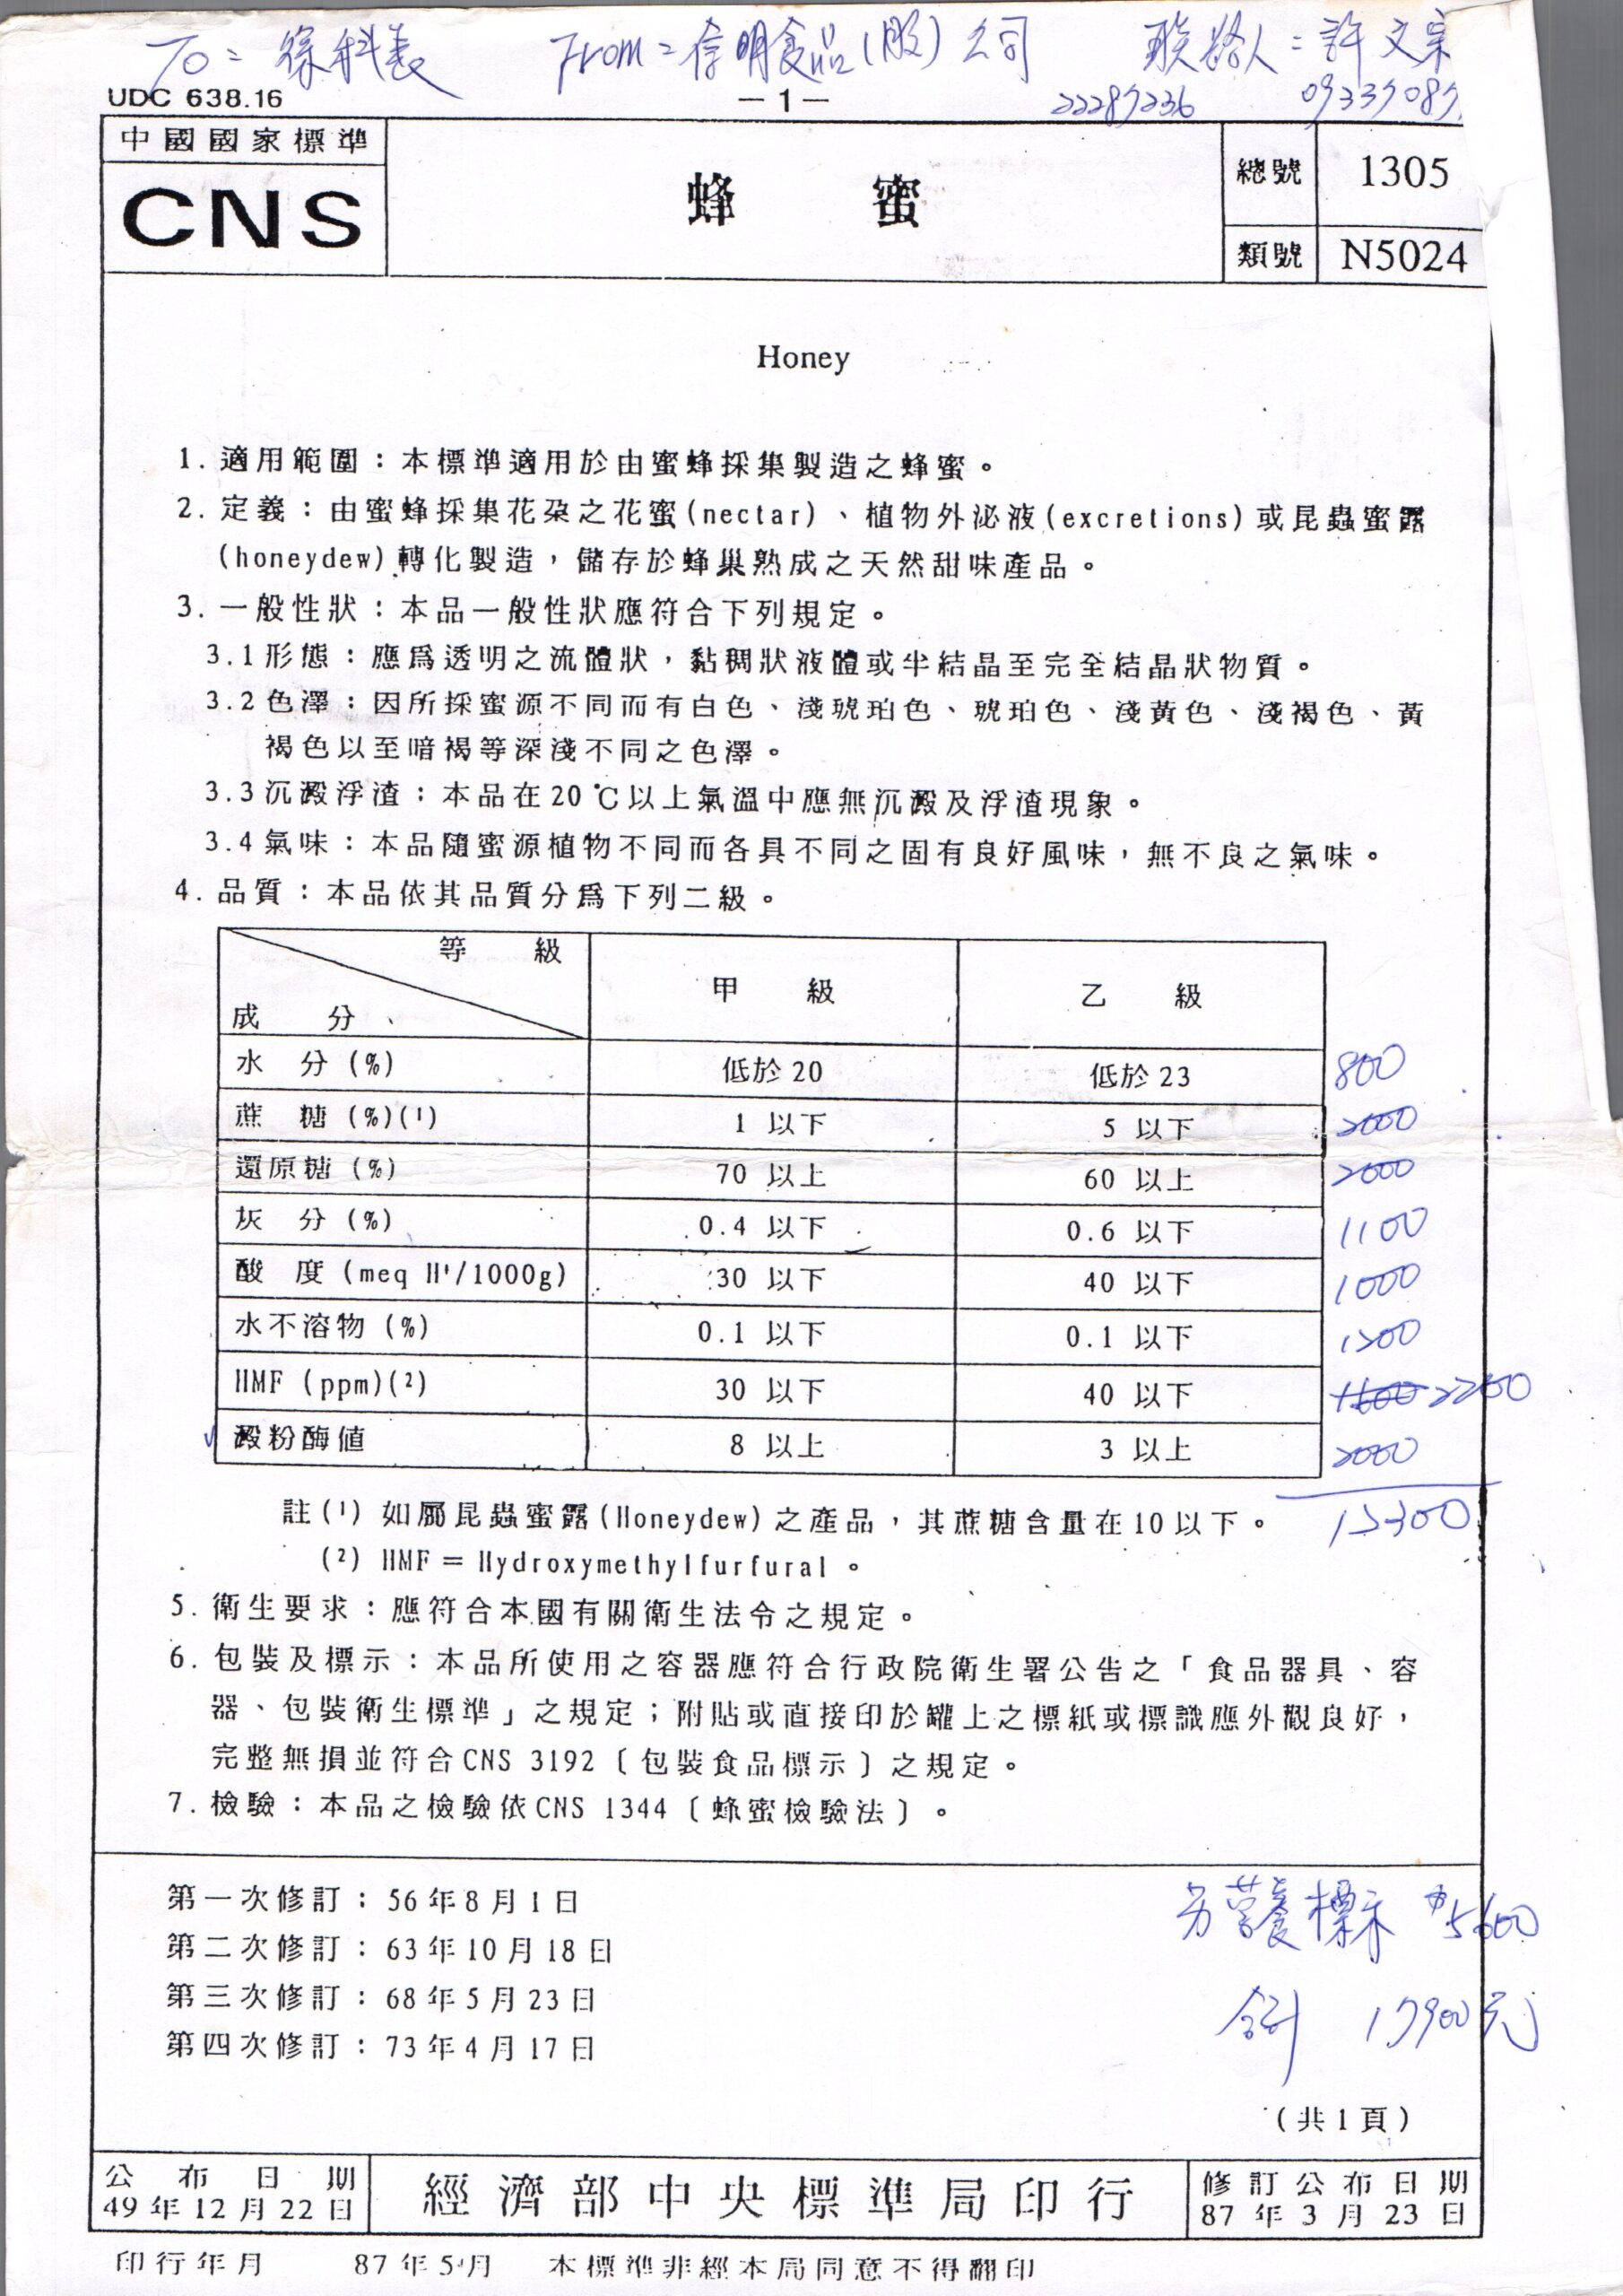 To= 徐科長 From=信明食品(股)公司 聯絡人=許文宗
22287236
UDC 638.16
—1—
中國國家標準
CNS
蜂 蜜
總號 1305
類號 N5024
Honey
1. 適用範圍：本標準適用於由蜜蜂採集製造之蜂蜜。
2. 定義：由蜜蜂採集花朶之花蜜(nectar)、植物外泌液(excretions)或昆蟲蜜露
(honeydew)轉化製造，儲存於蜂巢熟成之天然甜味產品。
3. 一般性狀：本品一般性狀應符合下列規定。
3.1 形態：應爲透明之流體狀，黏稠狀液體或半結晶至完全結晶狀物質。
3.2 色澤：因所採蜜源不同而有白色、淺琥珀色、琥珀色、淺黃色、淺褐色、黃
褐色以至暗褐等深淺不同之色澤。
3.3 沉澱浮渣：本品在20℃以上氣溫中應無沉澱及浮渣現象。
3.4 氣味：本品隨蜜源植物不同而各具不同之固有良好風味，無不良之氣味。
4. 品質：本品依其品質分爲下列二級。
等 級
成 分
甲 級 乙 級
水 分(%) 低於20 低於23 800
蔗 糖(%)(1) 1 以下 5 以下 2000
還原糖(%) 70 以上 60 以上 2000
灰 分(%) 0.4 以下 0.6 以下 1100
酸 度(meq H+/1000g) 30 以下 40 以下 1000
水不溶物(%) 0.1 以下 0.1 以下 1200
HMF (ppm)(2) 30 以下 40 以下 1600 2200
✓ 澱粉酶値 8 以上 3 以上 2000
12300
註(1) 如屬昆蟲蜜露(Honeydew)之產品，其蔗糖含量在10以下。
(2) HMF＝Hydroxymethylfurfural。
5. 衛生要求：應符合本國有關衛生法令之規定。
6. 包裝及標示：本品所使用之容器應符合行政院衛生署公告之「食品器具、容
器、包裝衛生標準」之規定；附貼或直接印於罐上之標紙或標識應外觀良好，
完整無損並符合CNS 3192〔包裝食品標示〕之規定。
7. 檢驗：本品之檢驗依CNS 1344〔蜂蜜檢驗法〕。
第一次修訂：56年8月1日
第二次修訂：63年10月18日
第三次修訂：68年5月23日
第四次修訂：73年4月17日
另營養標示 $5600
合計 17900元
(共1頁)
公布日期
49年12月22日
經濟部中央標準局印行
修訂公布日期
87年3月23日
印行年月 87年5月 本標準非經本局同意不得翻印